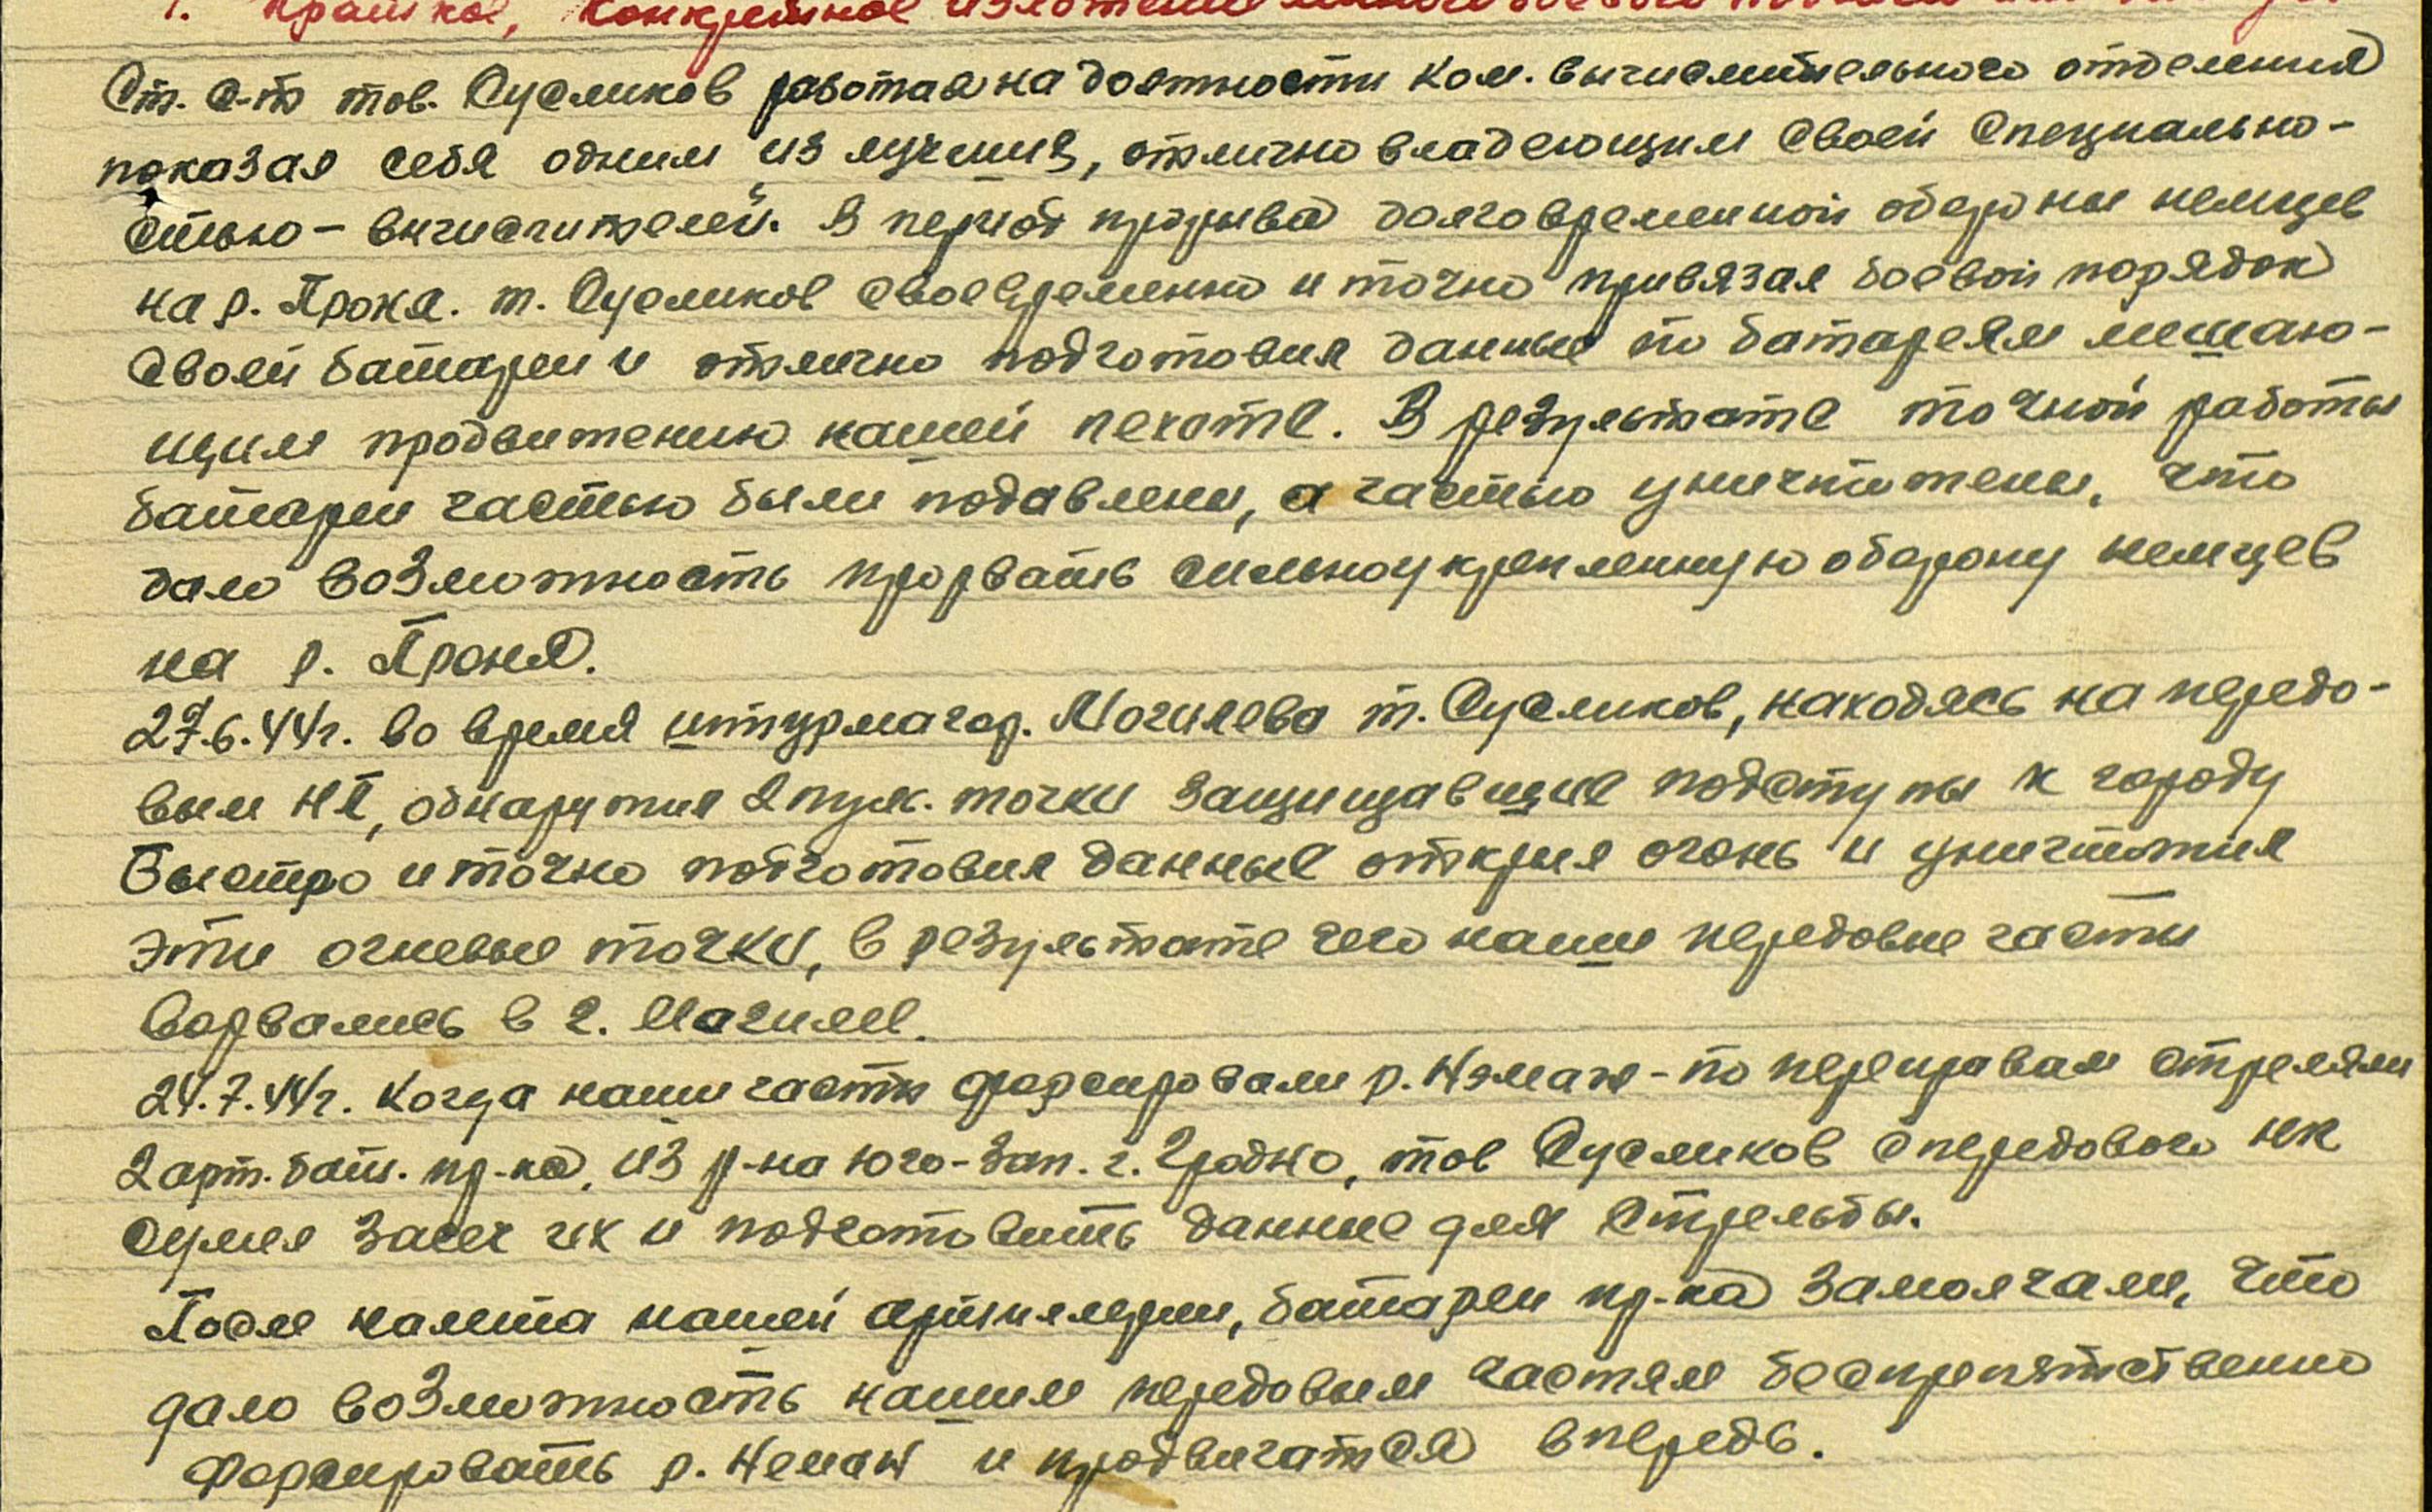 1. Краткое, конкретное изложение личного боевого
Ст. с-т тов. Сусликов работая на должности ком. вычислительного отделения
показал себя одним из лучших, отлично владеющим своей специально-
стью – вычислителей. В период прорыва долговременной обороны немцев
на р. Проня. т. Сусликов своевременно и точно привязал боевой порядок
своей батареи и отлично подготовил данные по батареям мешаю-
щим продвижению нашей пехоте. В результате точной работы
батареи частью были подавлены, а частью уничтожены, что
дало возможность прорвать сильноукрепленную оборону немцев
на р. Проня.
27.6.44г. во время штурма гор. Могилева т. Сусликов, находясь на передо-
вым НП, обнаружил 2 пул. точки защищавшие подступы к городу
Быстро и точно подготовил данные открыл огонь и уничтожил
эти огневые точки, в результате чего наши передовые части
ворвались в г. Могилев.
24.7.44г. Когда наши части форсировали р. Нэман – по переправам стреляли
2 арт. бат. пр-ка, из р-на юго-зап. г. Гродно, тов Сусликов с передового НП
сумел засеч их и подготовить данные для стрельбы.
После налета нашей артиллерии, батареи пр-ка замолчали, что
дало возможность нашим передовым частям беспрепятственно
форсировать р. Неман и продвигатся впередь.